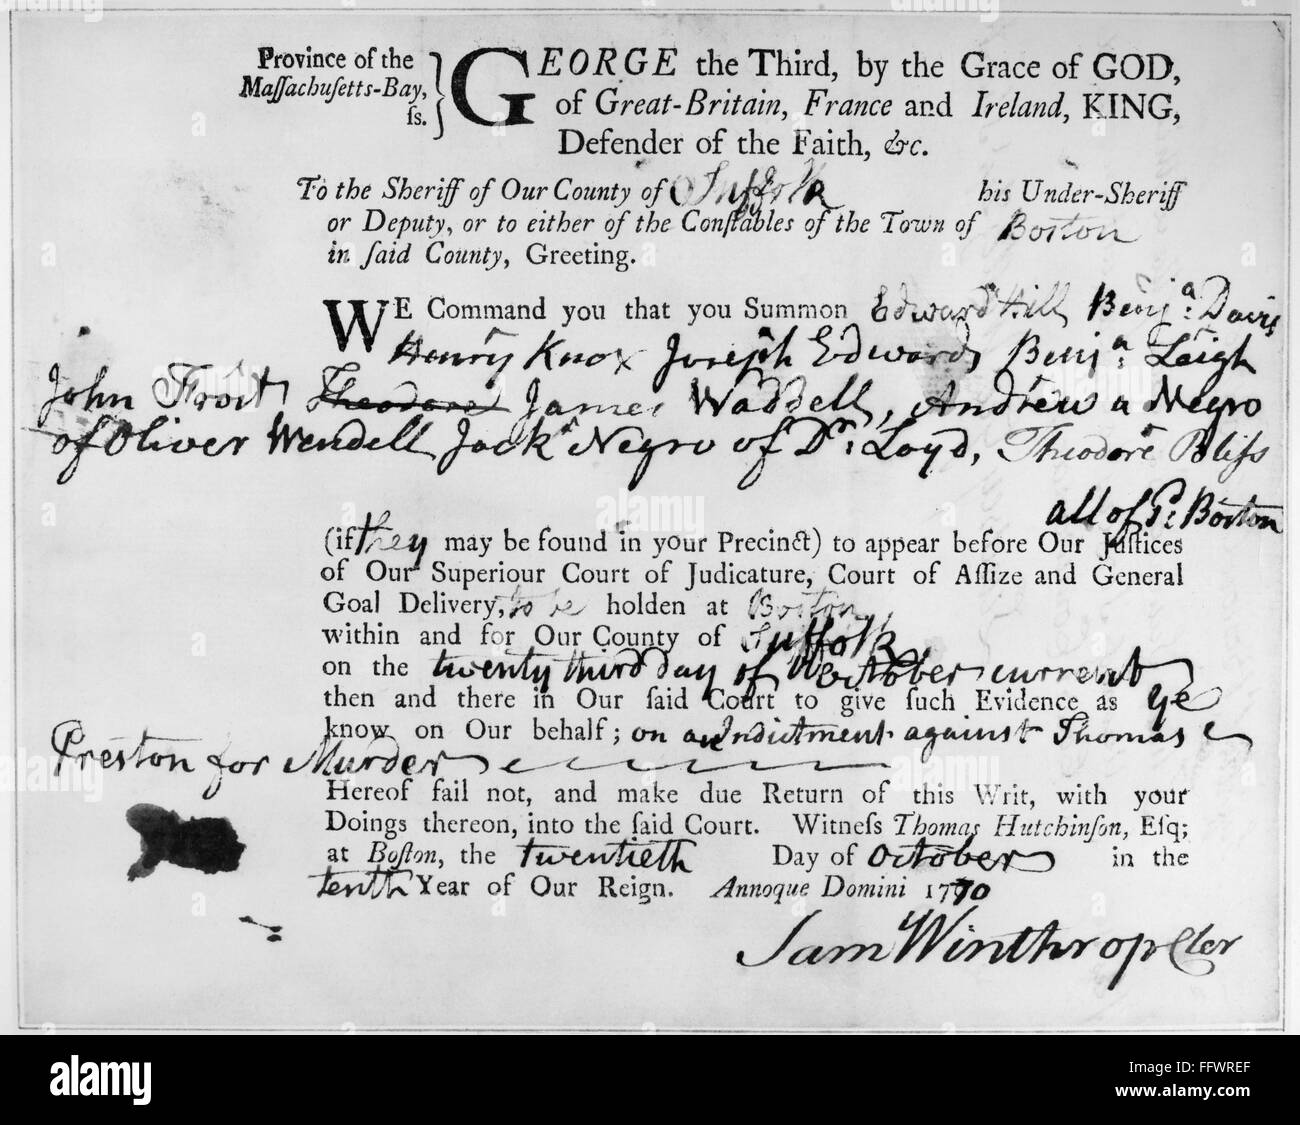 Province of the
Maſſachuſetts-Bay,
ſs.
GEORGE the Third, by the Grace of GOD,
of Great-Britain, France and Ireland, KING,
Defender of the Faith, &c.
To the Sheriff of Our County of Suffolk his Under-Sheriff
or Deputy, or to either of the Conſtables of the Town of Boston
in ſaid County, Greeting.
WE Command you that you Summon Edward Hill Benjª. Davis
Henry Knox Joseph Edwards Benjª. Leigh
John Frost Theodore James Waddell, Andrew a Negro
of Oliver Wendell Jack Negro of Dr. Loyd, Theodore Bliſs
all of sd. Boston
(if they may be found in your Precinct) to appear before Our Juſtices
of Our Superiour Court of Judicature, Court of Aſſize and General
Goal Delivery, to be holden at Boston
within and for Our County of Suffolk
on the twenty third day of October current
then and there in Our ſaid Court to give ſuch Evidence as ye
know on Our behalf; on an Indictment against Thomas
Preston for Murder
Hereof fail not, and make due Return of this Writ, with your
Doings thereon, into the ſaid Court. Witneſs Thomas Hutchinſon, Eſq;
at Boſton, the twentieth Day of October in the
tenth Year of Our Reign. Annoque Domini 1770
Sam Winthrop Cler
alamy
a
alamy stock photo
Image ID: FFWREF
www.alamy.com